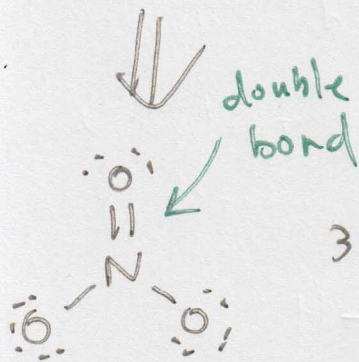 double
bond
O
N
3
O O